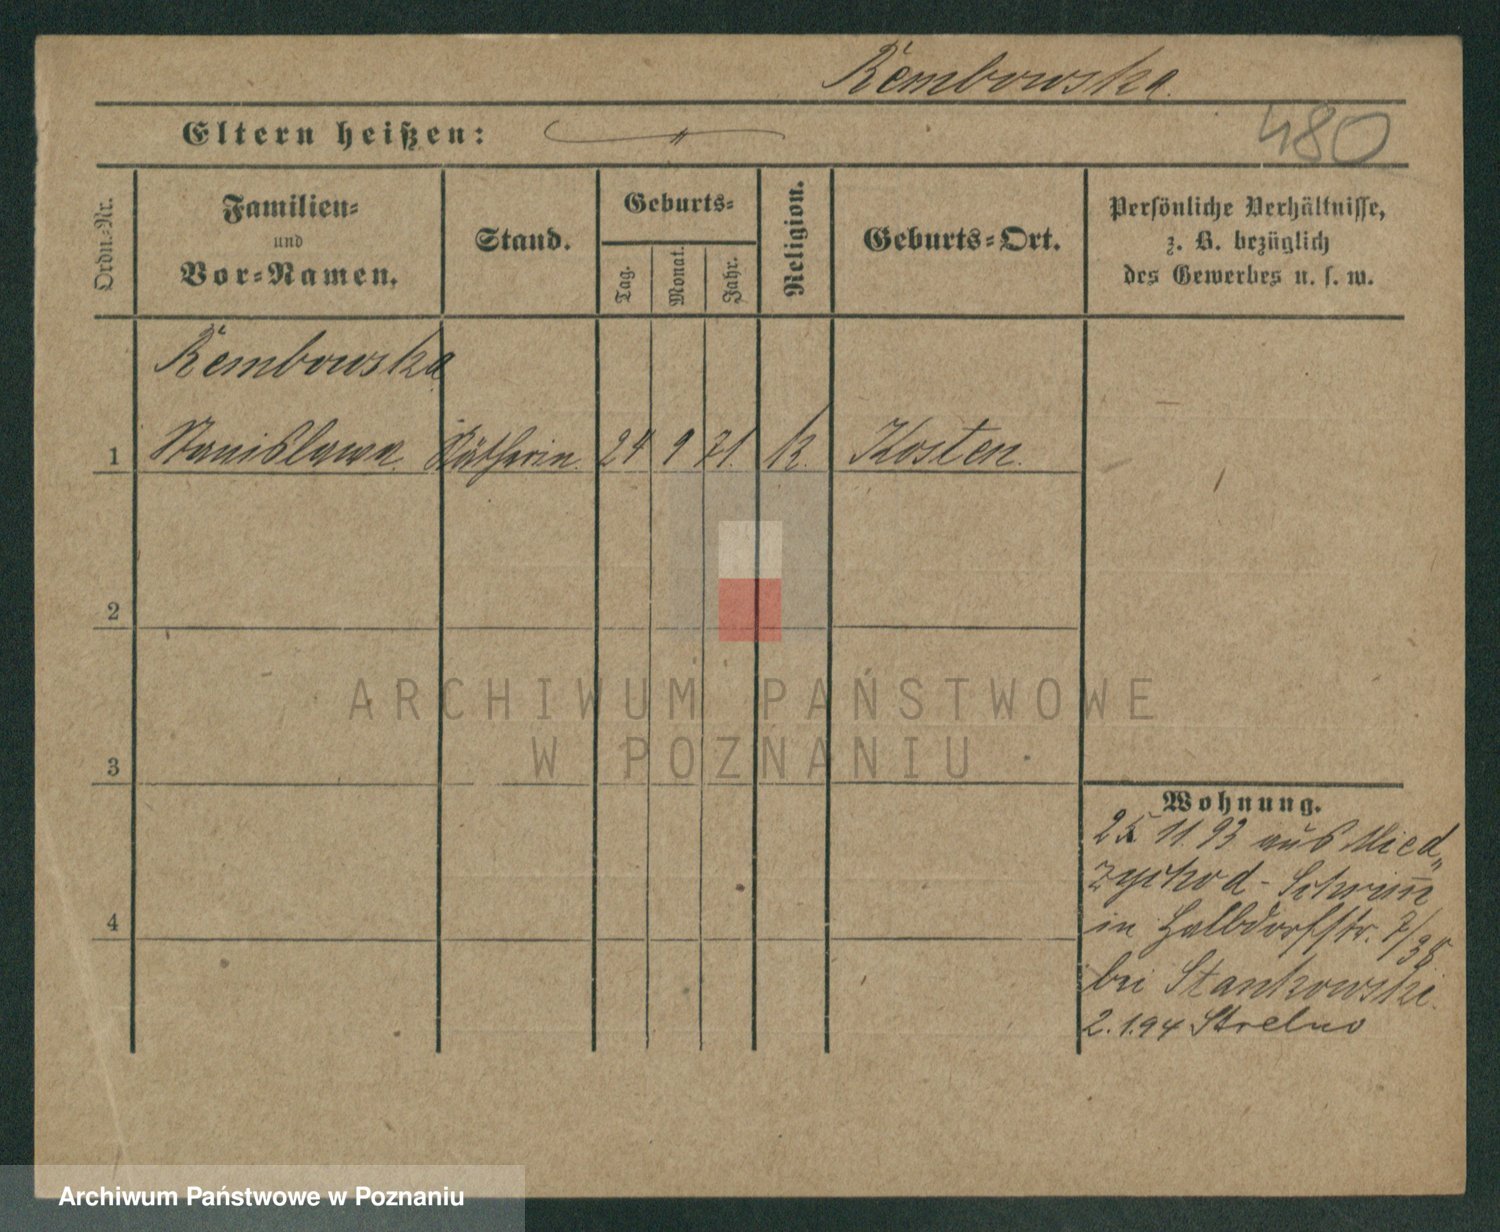 Rembowska
480
Eltern heißen:
Ordn.-Nr.
Familien-
und
Vor-Namen.
Stand.
Geburts-
Tag.
Monat.
Jahr.
Religion.
Geburts-Ort.
Persönliche Verhältnisse,
z. B. bezüglich
des Gewerbes u. s. w.
Rembowska
1 Stanislawa Näherin 24 9 71. k. Kosten.
2
3
4
Wohnung.
25 11. 93 aus Mied„
zychod - Schrimm
in Halbdorfstr. 7/38
bei Stankowski.
2.1.94 Strelno
ARCHIWUM PAŃSTWOWE
W POZNANIU
Archiwum Państwowe w Poznaniu